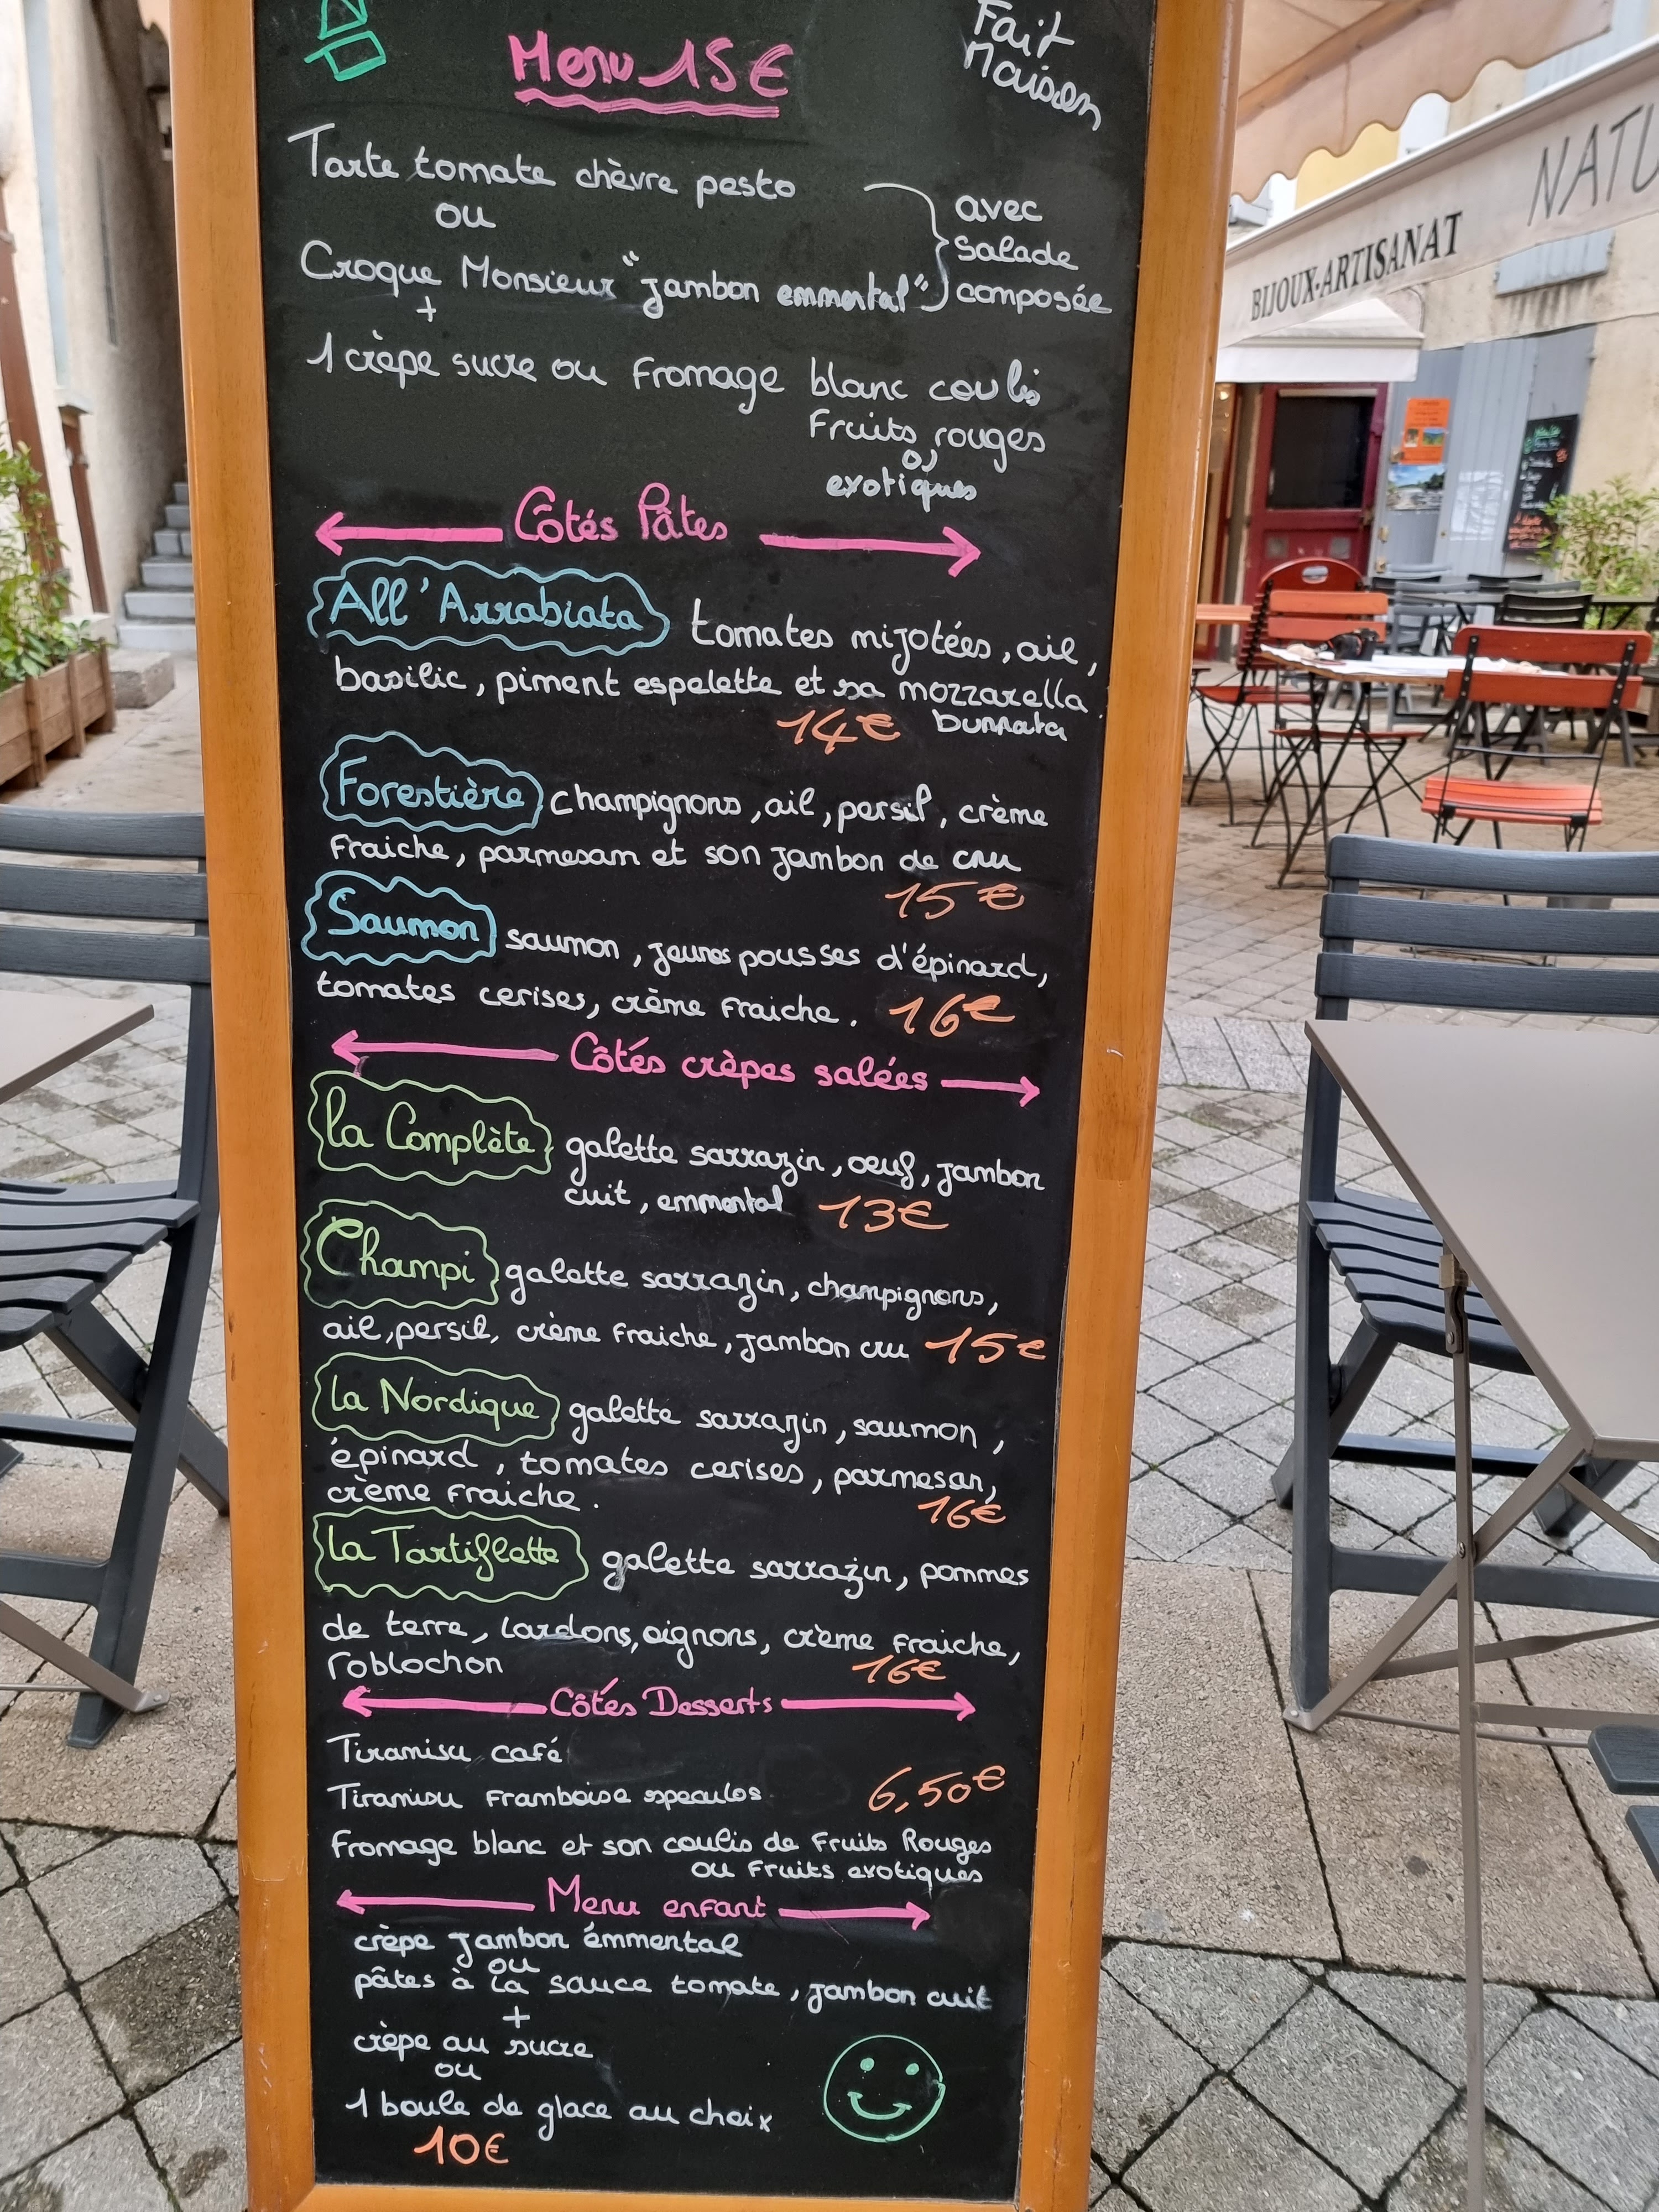 Menu 15€
Fait
Maison
Tarte tomate chèvre pesto
ou
Croque Monsieur "jambon emmental"
avec
salade
composée
+
1 crèpe sucre ou Fromage blanc coulis
Fruits rouges
ou
exotiques
Côtés Pâtes
All'Arrabiata tomates mijotées, ail,
basilic, piment espelette et sa mozzarella
burrata
14€
Forestière champignons, ail, persil, crème
Fraiche, parmesan et son jambon de cru
15€
Saumon saumon, jeunes pousses d'épinard,
tomates cerises, crème Fraiche. 16€
Côtés crèpes salées
la Complète galette sarrazin, oeuf, jambon
cuit, emmental 13€
Champi galette sarrazin, champignons,
ail, persil, crème Fraiche, jambon cru 15€
la Nordique galette sarrazin, saumon,
épinard, tomates cerises, parmesan,
crème Fraiche.
16€
la Tartiflette galette sarrazin, pommes
de terre, lardons, oignons, crème Fraiche,
roblochon 16€
Côtés Desserts
Tiramisu café
Tiramisu Framboise speculos 6,50€
Fromage blanc et son coulis de Fruits Rouges
ou Fruits exotiques
Menu enfant
crèpe jambon émmental
ou
pâtes à la sauce tomate, jambon cuit
+
crèpe au sucre
ou
1 boule de glace au choix
10€
BIJOUX·ARTISANAT
NATU